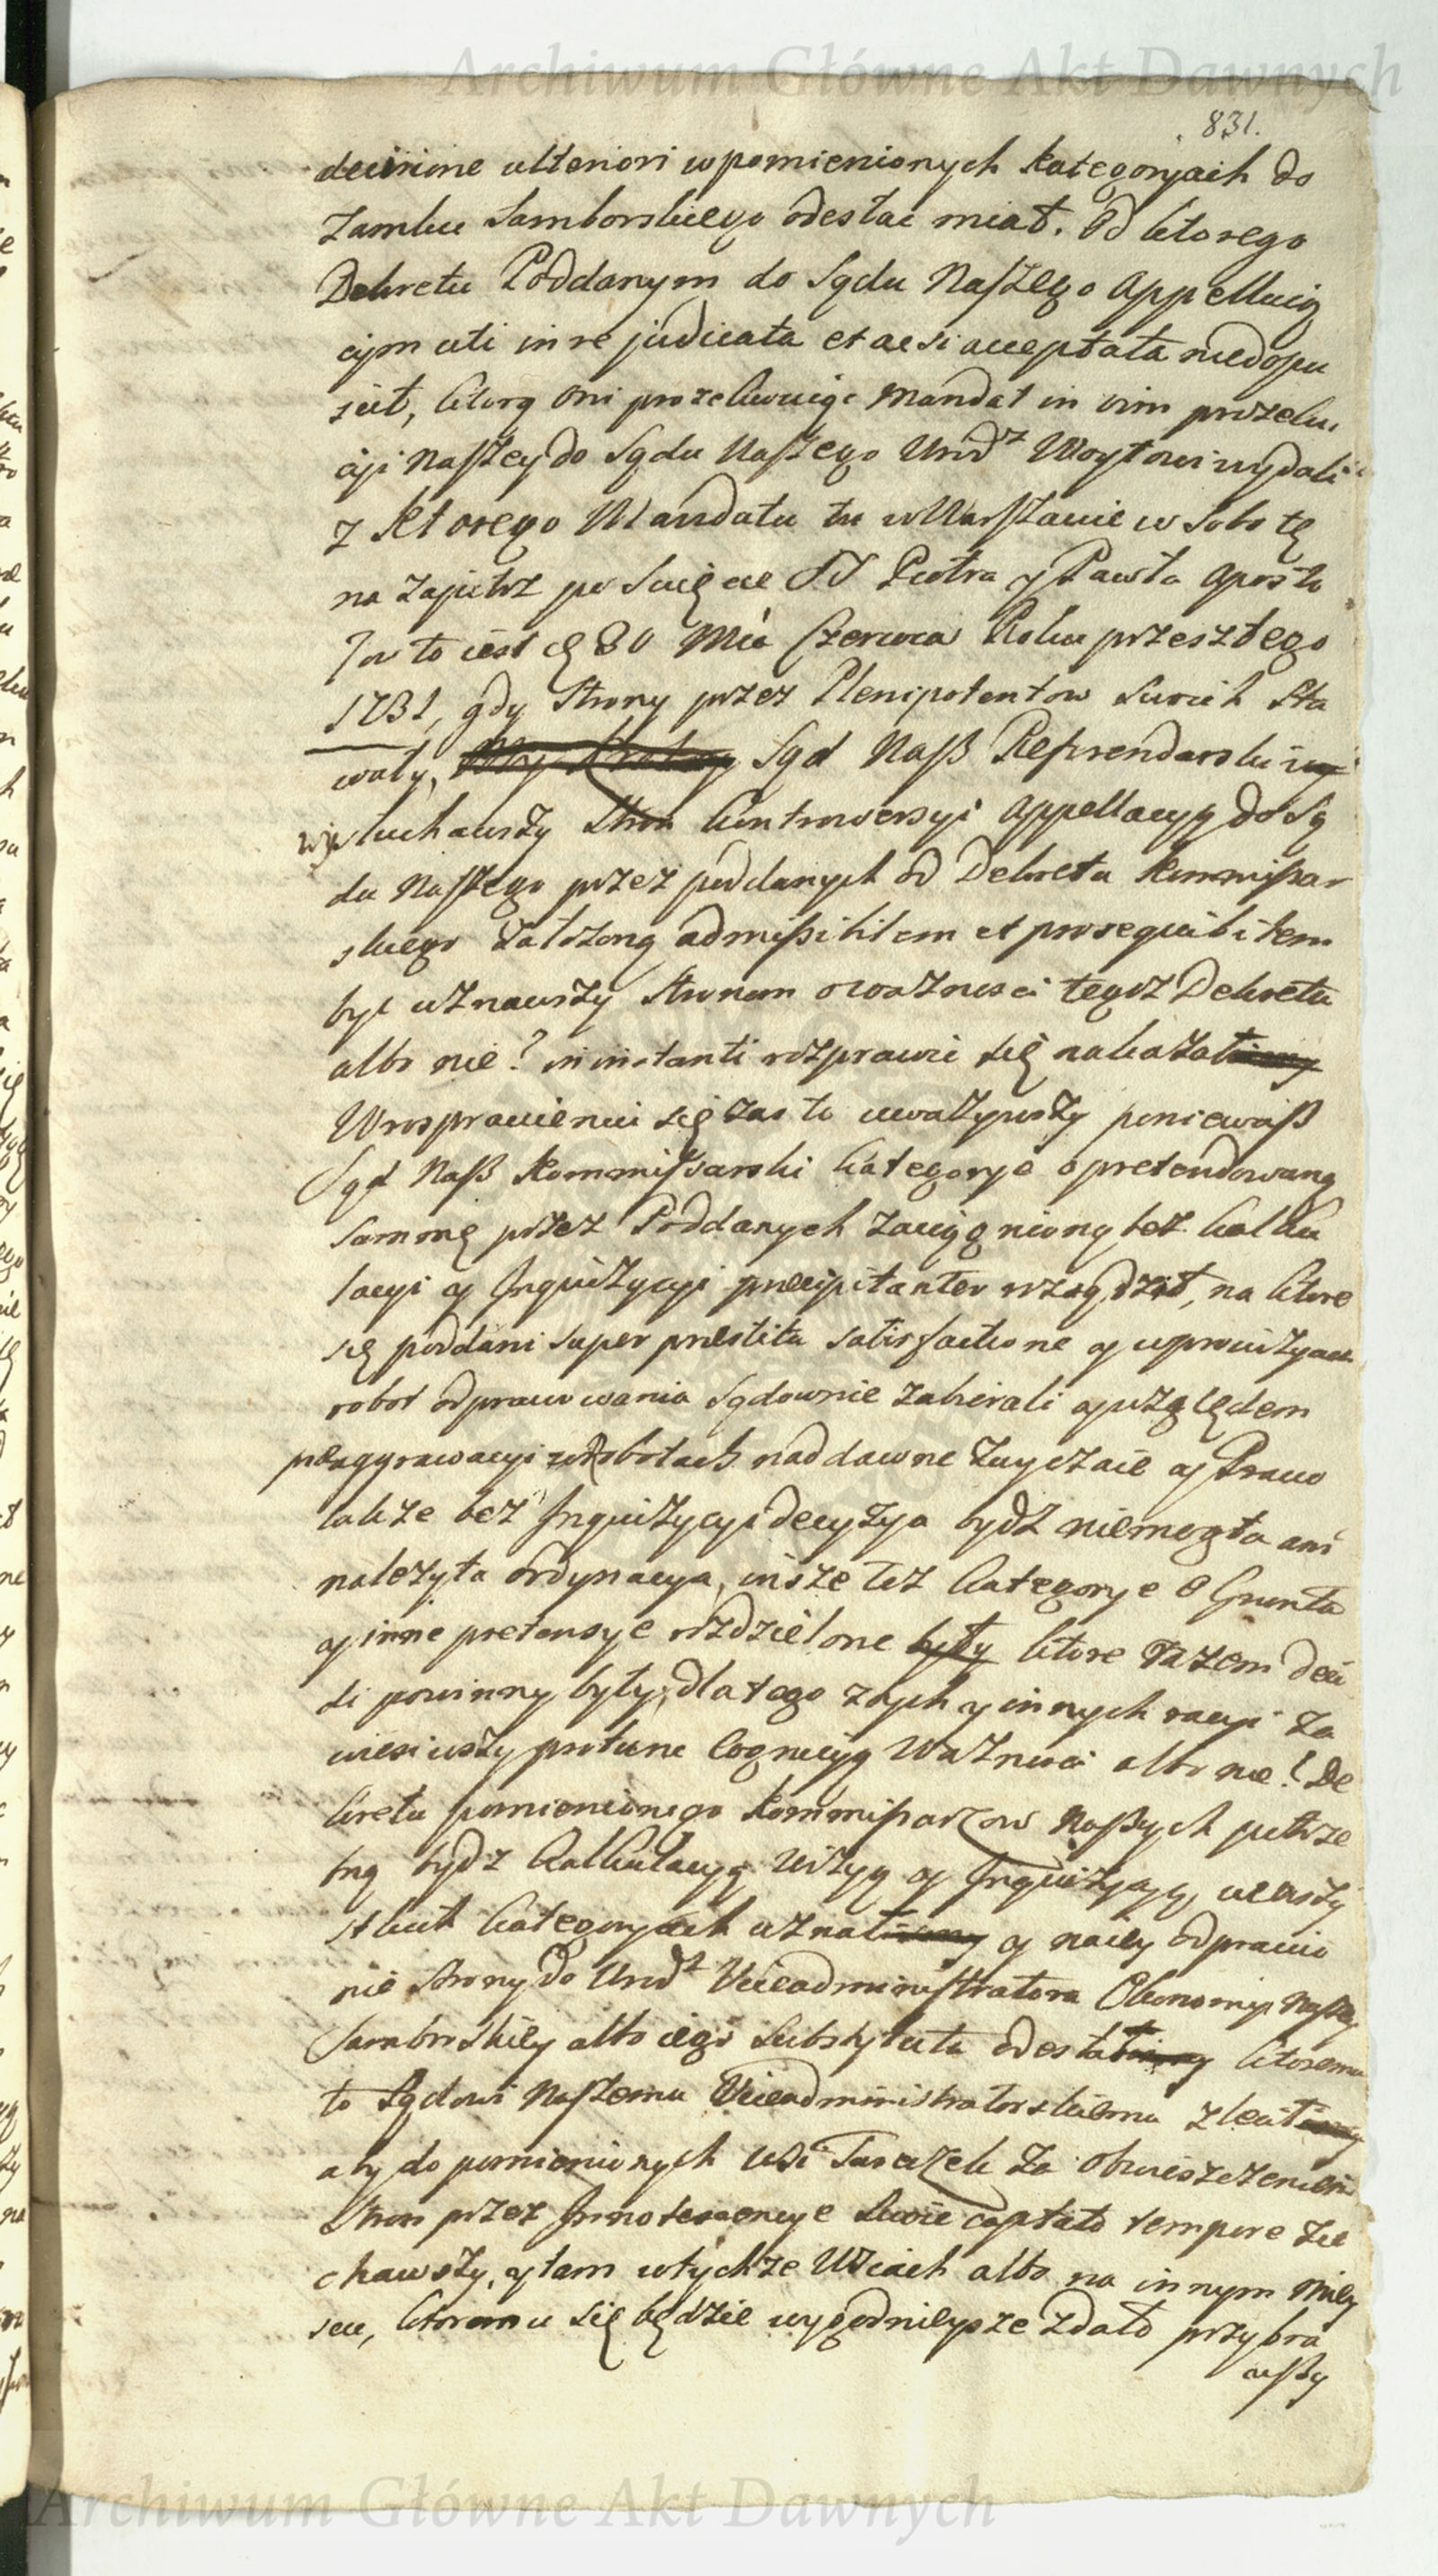 Archiwum Główne Akt Dawnych
831.
decisione ulteriori wpomienionych kategoryach do
Zamku Samborskiego odesłac miał. Od ktorego
Dekretu Poddanym do Sądu Naszego Appellacią
cijm uti in re judicata et ac si acceptata niedopu
scił, ktorą oni prozekwuiąc Mandat in vim prozeku
cyi Naszey do Sądu Naszego Urodz Woytowi wydali
z ktorego Mandatu tu w Warszawie w Sobotę
na zajutrz po Swięcie SS Piotra y Pawła Aposto
łow to iest d 30 Mca Czerwca Roku przeszłego
1731, gdy Strony przez Plenipotentow Swoich Sta
wały, Sąd Nasz Referendarski
wysłuchawszy Stron kontrowersyi appellacyą do Są
du Naszego przez poddanych od Dekretu Kommissar
skiego założoną admissibilem et prosequibilem
byc uznawszy Stronom o ważnosci tegoż Dekretu
albo nie? in instanti rozprawic się nakazał
W rosprawieniu się zas to uważywszy poniewasz
Sąd Nasz Kommissarski kategorye o pretendowaną
Sommę przez Poddanych zaciągnioną bez kalku
lacyi y Inquizycyi precipitanter rozsądził, na ktore
się poddani super prestita satisfactione y uprowizyow
robot odprawowania Sądownie zabierali y względem
praegrawacyi w Robotach nad dawne zwyczaie y Prawo
także bez Inquizycyi decyzya bydz niemogła ani
należyta ordynacya, insze też kategorye o Grunta
y inne pretensye rozdzielone były ktore razem deci
di powinny były, dlatego z tych y innych racyi za
wiesiwszy protunc cognicyą ważnosci albo nie! De
kretu pomienionego Kommissarzow Naszych potrze
bną bydz kalkulacyą wizyą y Inquizycyą wewszy
stkich kategoryach uznał y naiey odprawie
nie Strony do Urodz Viceadministratora Ekonomyi Naszey
Samborskiey albo iego Substytuta odesłał ktoremu
to Sądowi Naszemu Viceadministratorskiemu zlecił
aby do pomienionych wsi za obwieszczeniem
Stron przez Innotescencye Swoie captato tempore zie
chawszy, y tam wtychże Wsiach albo na innym miey
scu, ktoremu się będzie wygodnieysze zdało przybra
wszy
Archiwum Główne Akt Dawnych